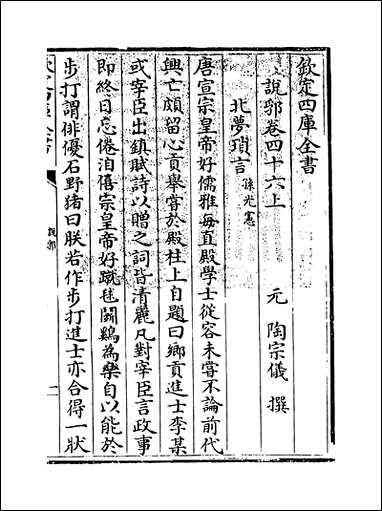 欽定四庫全書
說郛卷四十六上
元 陶宗儀 撰
北夢瑣言 孫光憲
唐宣宗皇帝好儒雅每直殿學士從容未嘗不論前代
興亡頗留心貢舉嘗於殿柱上自題曰鄉貢進士李某
或宰臣出鎮賦詩以贈之詞皆清麗凡對宰臣言政事
即終日忘倦洎僖宗皇帝好蹴毬鬭鷄為樂自以能於
步打謂俳優石野猪曰朕若作步打進士亦合得一狀
說郛